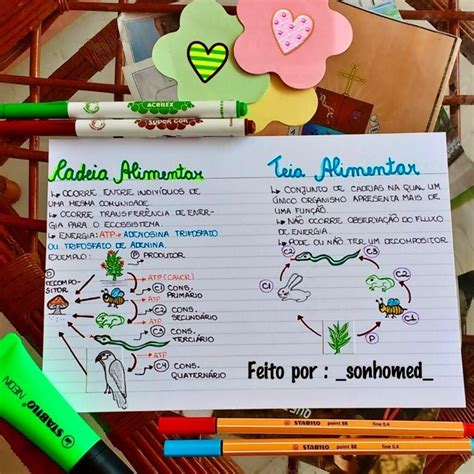 ACRILEX
SUPER COR
Kadeia Alimentar
↳ OCORRE ENTRE INDIVÍDUOS DE
UMA MESMA COMUNIDADE.
↳ OCORRE TRANSFERÊNCIA DE ENER-
GIA PARA O ECOSSISTEMA.
↳ ENERGIA: ATP → ADENOSINA TRIFOSFATO
OU TRIFOSFATO DE ADENINA.
EXEMPLO:
P PRODUTOR
DECOMPO-
SITOR
ATP (CALOR)
C1 CONS.
PRIMÁRIO
ATP
C2 CONS.
SECUNDÁRIO
ATP
C3 CONS.
TERCIÁRIO
ATP
C4 CONS.
QUATERNÁRIO
Teia Alimentar
↳ CONJUNTO DE CADEIAS NA QUAL UM
ÚNICO ORGANISMO APRESENTA MAIS DE
UMA FUNÇÃO.
↳ NÃO OCORRE OBSERVAÇÃO DO FLUXO
DE ENERGIA.
↳ PODE OU NÃO TER UM DECOMPOSITOR.
C2
C3
C2
C1
C1
P
Feito por : _sonhomed_
STABILO NEON
STABILO point 88 fine 0,4
STABILO point 88 fine 0,4